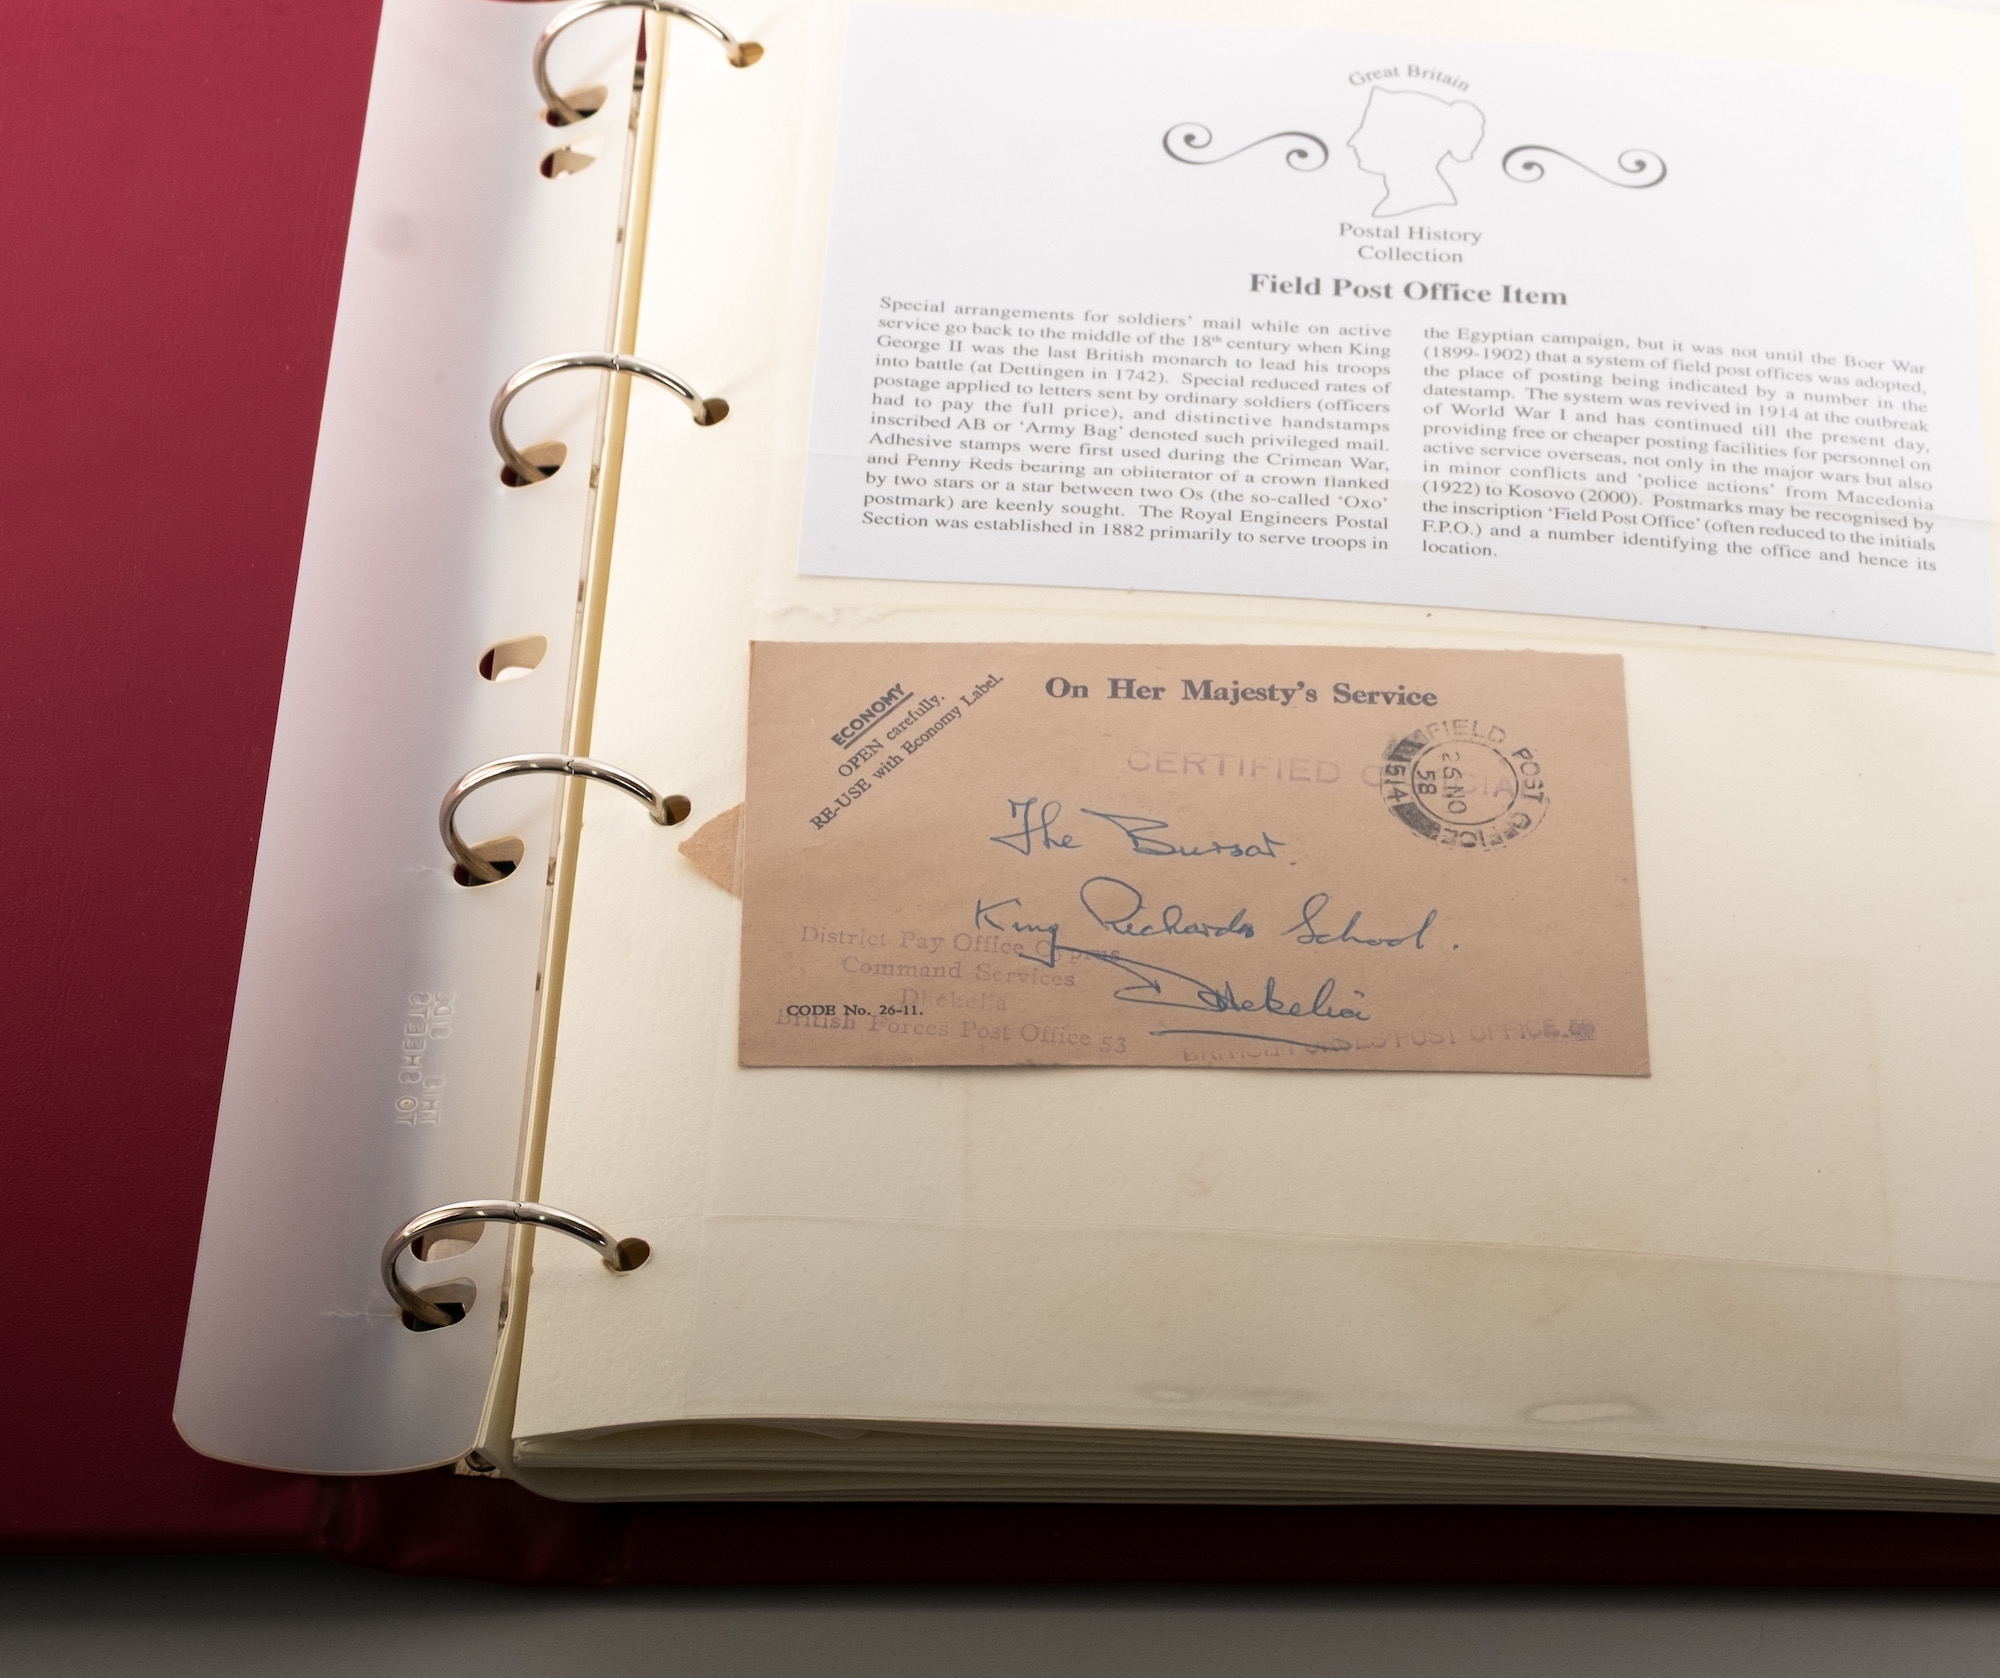 Great Britain
Postal History
Collection
Field Post Office Item
Special arrangements for soldiers' mail while on active
service go back to the middle of the 18th century when King
George II was the last British monarch to lead his troops
into battle (at Dettingen in 1742). Special reduced rates of
postage applied to letters sent by ordinary soldiers (officers
had to pay the full price), and distinctive handstamps
inscribed AB or 'Army Bag' denoted such privileged mail.
Adhesive stamps were first used during the Crimean War,
and Penny Reds bearing an obliterator of a crown flanked
by two stars or a star between two Os (the so-called 'Oxo'
postmark) are keenly sought. The Royal Engineers Postal
Section was established in 1882 primarily to serve troops in
the Egyptian campaign, but it was not until the Boer War
(1899-1902) that a system of field post offices was adopted,
the place of posting being indicated by a number in the
datestamp. The system was revived in 1914 at the outbreak
of World War I and has continued till the present day,
providing free or cheaper posting facilities for personnel on
active service overseas, not only in the major wars but also
in minor conflicts and 'police actions' from Macedonia
(1922) to Kosovo (2000). Postmarks may be recognised by
the inscription 'Field Post Office' (often reduced to the initials
F.P.O.) and a number identifying the office and hence its
location.
ECONOMY
OPEN carefully.
RE-USE with Economy Label.
On Her Majesty's Service
CERTIFIED
FIELD POST OFFICE
514
26 NO
58
The Bursar.
King Richards School.
Dhekelia
District Pay Office Cyprus
Command Services
Dhekelia
CODE No. 26-11.
British Forces Post Office 53
BRITISH FORCES POST OFFICE
TO SHEETS
THIS SIDE